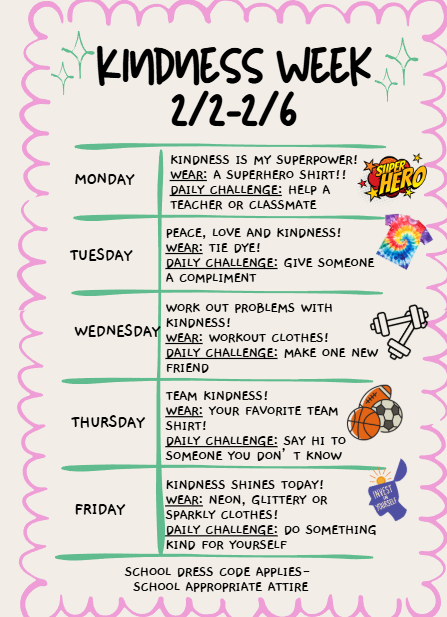 KINDNESS WEEK
2/2-2/6
MONDAY
KINDNESS IS MY SUPERPOWER!
WEAR: A SUPERHERO SHIRT!!
DAILY CHALLENGE: HELP A
TEACHER OR CLASSMATE
SUPER
HERO
TUESDAY
PEACE, LOVE AND KINDNESS!
WEAR: TIE DYE!
DAILY CHALLENGE: GIVE SOMEONE
A COMPLIMENT
WEDNESDAY
WORK OUT PROBLEMS WITH
KINDNESS!
WEAR: WORKOUT CLOTHES!
DAILY CHALLENGE: MAKE ONE NEW
FRIEND
THURSDAY
TEAM KINDNESS!
WEAR: YOUR FAVORITE TEAM
SHIRT!
DAILY CHALLENGE: SAY HI TO
SOMEONE YOU DON'T KNOW
FRIDAY
KINDNESS SHINES TODAY!
WEAR: NEON, GLITTERY OR
SPARKLY CLOTHES!
DAILY CHALLENGE: DO SOMETHING
KIND FOR YOURSELF
INVEST
IN
YOURSELF
SCHOOL DRESS CODE APPLIES-
SCHOOL APPROPRIATE ATTIRE